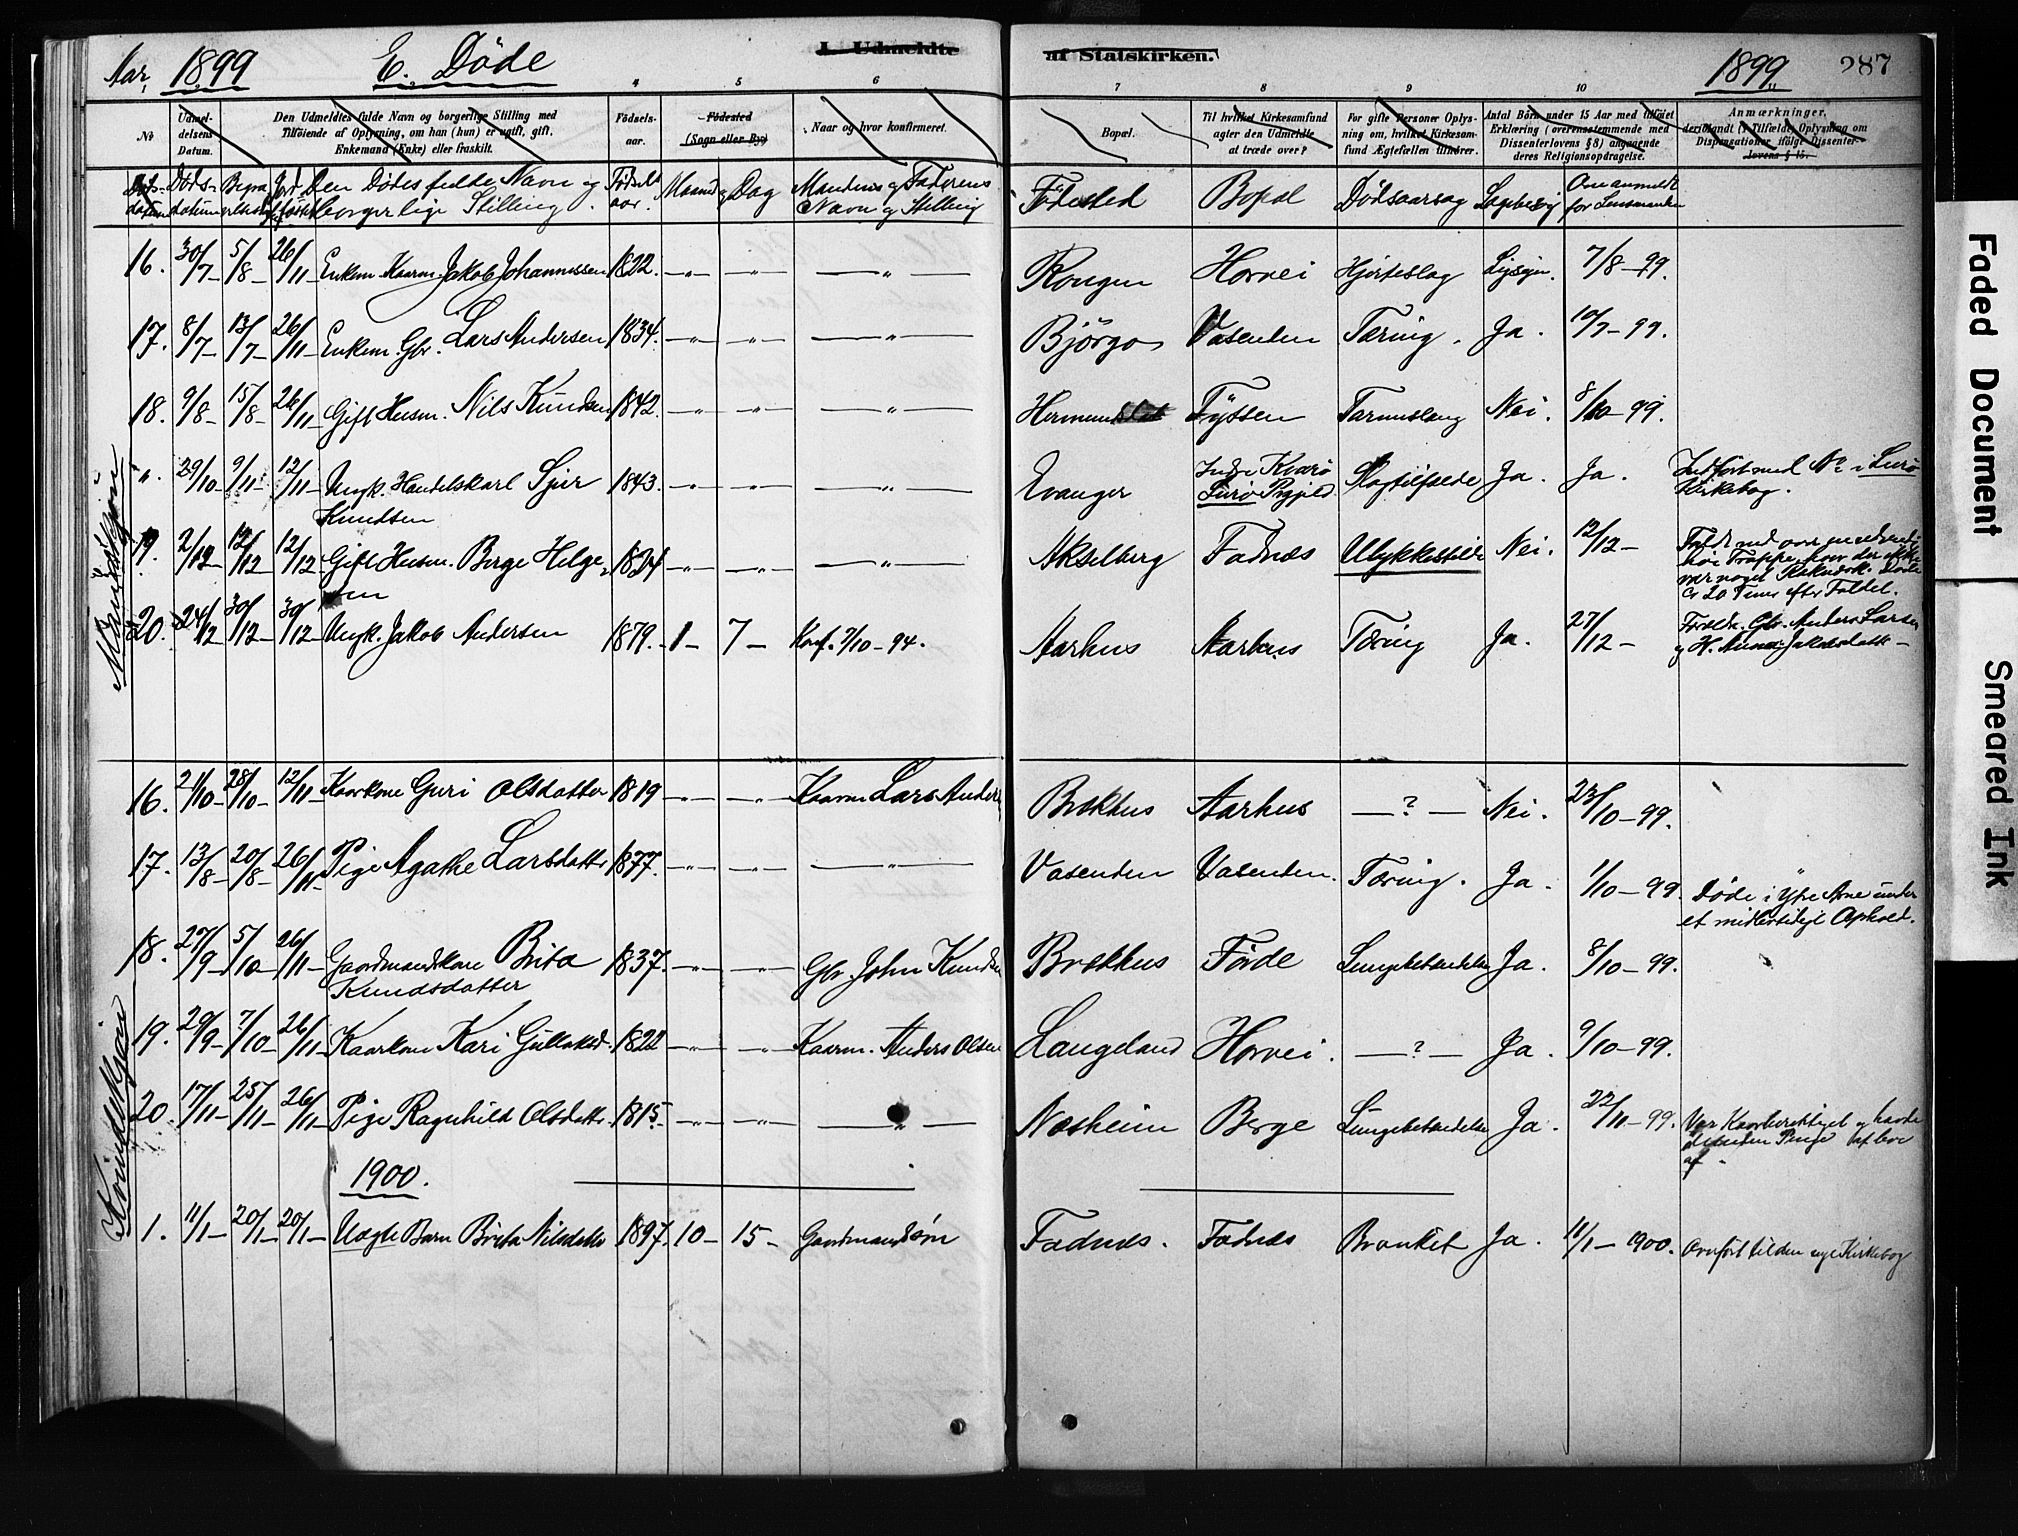 Aar, 1899 E. Døde I. Udmeldte af Statskirken. 1899 287
4 5 6 7 8 9 10
No Udmeldelsens Datum. Den Udmeldtes fulde Navn og borgerlige Stilling med Tilføiende af Oplysning, om han (hun) er ugift, gift, Enkemand (Enke) eller fraskilt. Fødselsaar. Fødested (Sogn eller By) Naar og hvor konfirmeret. Bopæl. Til hvilket Kirkesamfund agter den Udmeldte at træde over? For gifte Personer Oplysning om, hvilket Kirkesamfund Ægtefællen tilhører. Antal Børn under 15 Aar med tilføiet Erklæring (overensstemmende med Dissenterlovens § 8) angaaende deres Religionsopdragelse. Anmærkninger, deriblandt (i Tilfælde) Oplysning om Dispensationer ifølge Dissenterlovens § 15.
Dødsdatum Den Dødes fulde Navn og borgerlige Stilling. Fødselsaar. Maaned og Dag Mandens og Faderens Navn og Stilling Fødested Bopæl Dødsaarsag Lægebesøg Om anmeldt for Lensmanden
Mandskjøn
16. 30/7 – 5/8 – 26/11 Enkem. Kaarm. Jakob Johannessen 1822. – " – – " – – " – Rongen Horvei Hjerteslag Ligsyn. 7/8 – 99.
17. 8/7 – 13/7 – 26/11 – Enkem. Gbr. Lars Andersen 1834. – " – – " – – " – Bjørgo Vasenden Tæring. Ja. 10/7 – 99.
18. 9/8 – 15/8 – 26/11 Gift Husm. Nils Knudsen 1842. – " – – " – – " – Fyssen Nei. 8/10 – 99.
". 29/10 – 9/11 – 12/11 – Ungk. Handelskarl Sjur Knudsen 1843. – " – – " – – " – Evanger Indre Kvarø Lurø Prgjeld Slagtilfælde Ja. Ja. Indført med No i Lurø Kirkebog.
19. 2/12 – 12/12 – 12/12 Gift Husm. Berge Helgesen 1824 – " – – " – – " – Akselberg Fadnæs Ulykkestilde Nei. 12/12 – Faldt ned over en Trappe hvor der ikke var noget Rækværk. Døde Cr 20 Timer efter Faldet.
20. 24/12 30/12 – 30/12 – Ungk. Jakob Andersen 1879. – 1 – 7 – Konf. 7/10 – 94. Aarhus Aarhus Tæring Ja. 27/12 – Foreldr. Gbr. Anders Larsen og H. Anna Jakobsdatt –
Kvindekjøn
16. 21/10 – 28/10 – 12/11 – Kaarkone Guri Olsdatter 1819 – " – – " – Kaarm Lars Anders Brækhus Aarhus – ? – Nei. 23/10 – 99.
17. 13/8 – 20/8 – 26/11 – Pige Agathe Larsdattr 1877. – " – – " – – " – Vasenden Vasenden. Tæring. Ja. 1/10 – 99. Døde i Ytre Arne under et midlertidigt Ophold.
18. 27/9 – 5/10 – 26/11 – Gaardmandskone Brita Knudsdatter 1837. – " – – " – Gbr. John Knudsen Brækhus Førde Lungebetændelse Ja. 8/10 – 99.
19. 29/9 – 7/10 – 26/11 – Kaarkone Kari Gullaksd. 1822 – " – – " – Kaarm. Anders Olsen Langeland Horvei. – ? – Ja. 9/10 – 99.
20. 17/11 – 25/11 – 26/11 – Pige Ragnhild Olsdattr 1815. – " – – " – – " – Næsheim Berge Lungebetændelse Ja. 22/11 – 99. Var Kaarberettiget og havde desuden Penge at leve af.
1900.
1. 11/1 – 20/1 – 20/1 – Uægte Barn Brita Nilsdatter 1897. 10 – 15 – Gaardmandsøn Fadnæs. Fadnæs Bronket Ja. 11/1 – 1900. Overført til den nye Kirkebog
Faded Document
Smeared Ink